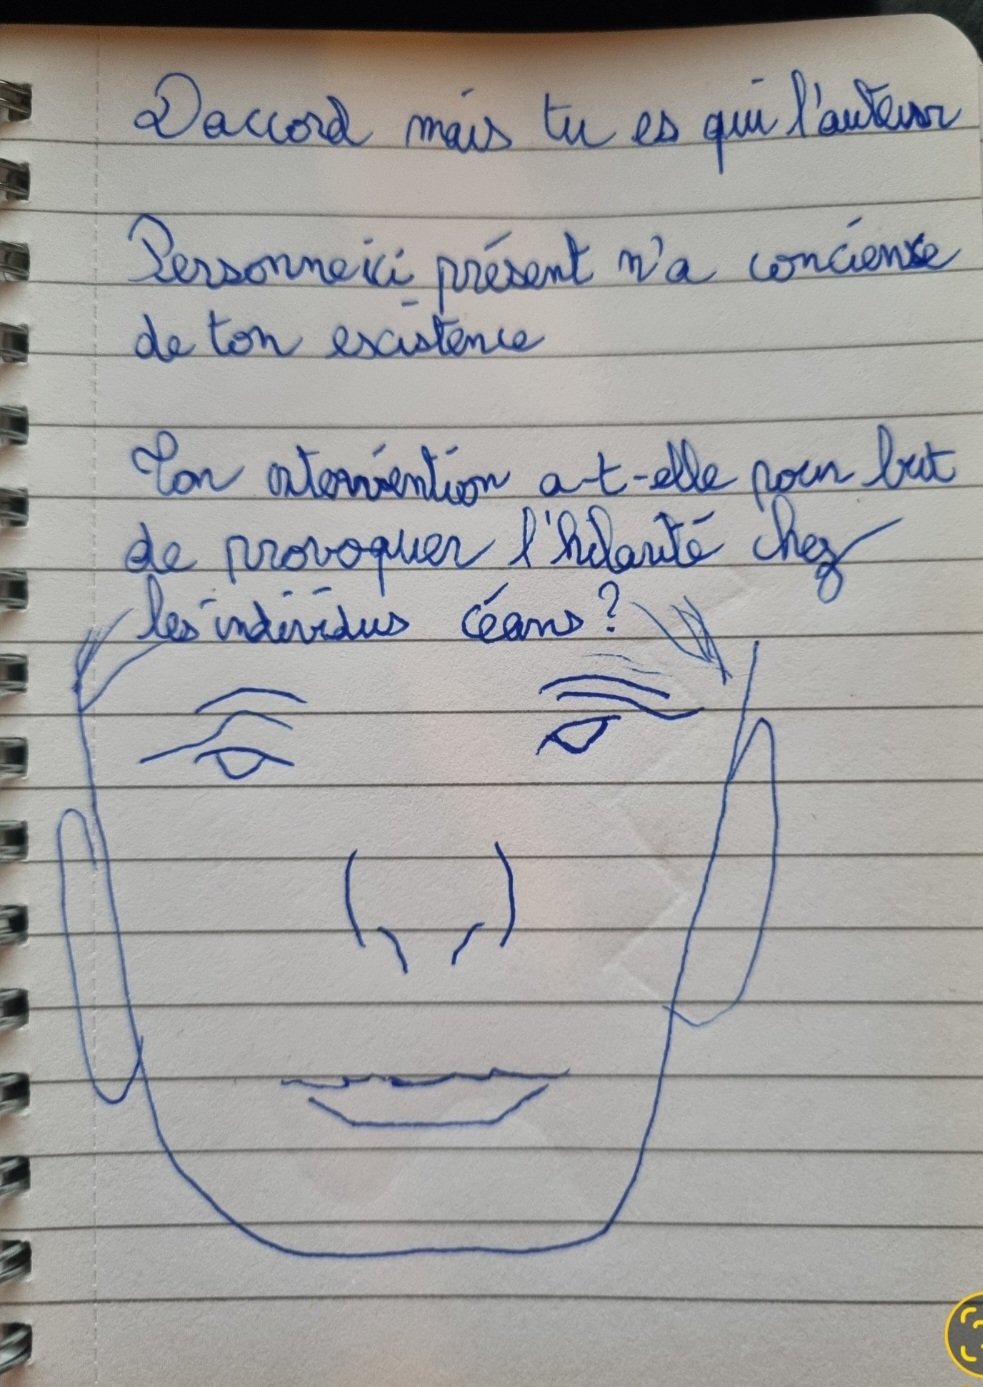 Daccord mais tu es qui l'auteur
Personne ici présent n'a concience
de ton existence
Ton intervention a-t-elle pour but
de provoquer l'hilarité chez
les individus céans?